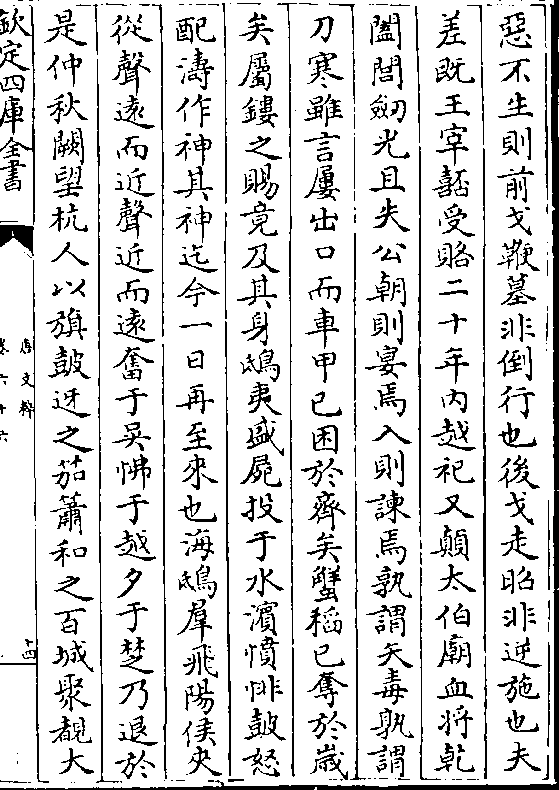 惡不生則前戈鞭墓非倒行也後戈走昭非逆施也夫
差既王宰嚭受賂二十年內越祀又顛太伯廟血將乾
闔閭劒光且失公朝則宴焉入則諫焉孰謂矢毒孰謂
刀寒雖言屢出口而車甲已困於齊矣蟹稻已奪於歲
矣屬鏤之賜竟及其身鴟夷盛屍投于水濱憤悱鼓怒
配濤作神其神迄今一日再至來也海鴟羣飛陽侯夾
從聲遠而近聲近而遠奮于吳怫于越夕于楚乃退於
是仲秋闕望杭人以旗鼓迓之笳簫和之百城聚觀大
欽定四庫全書
唐文粹
卷六十六
十四